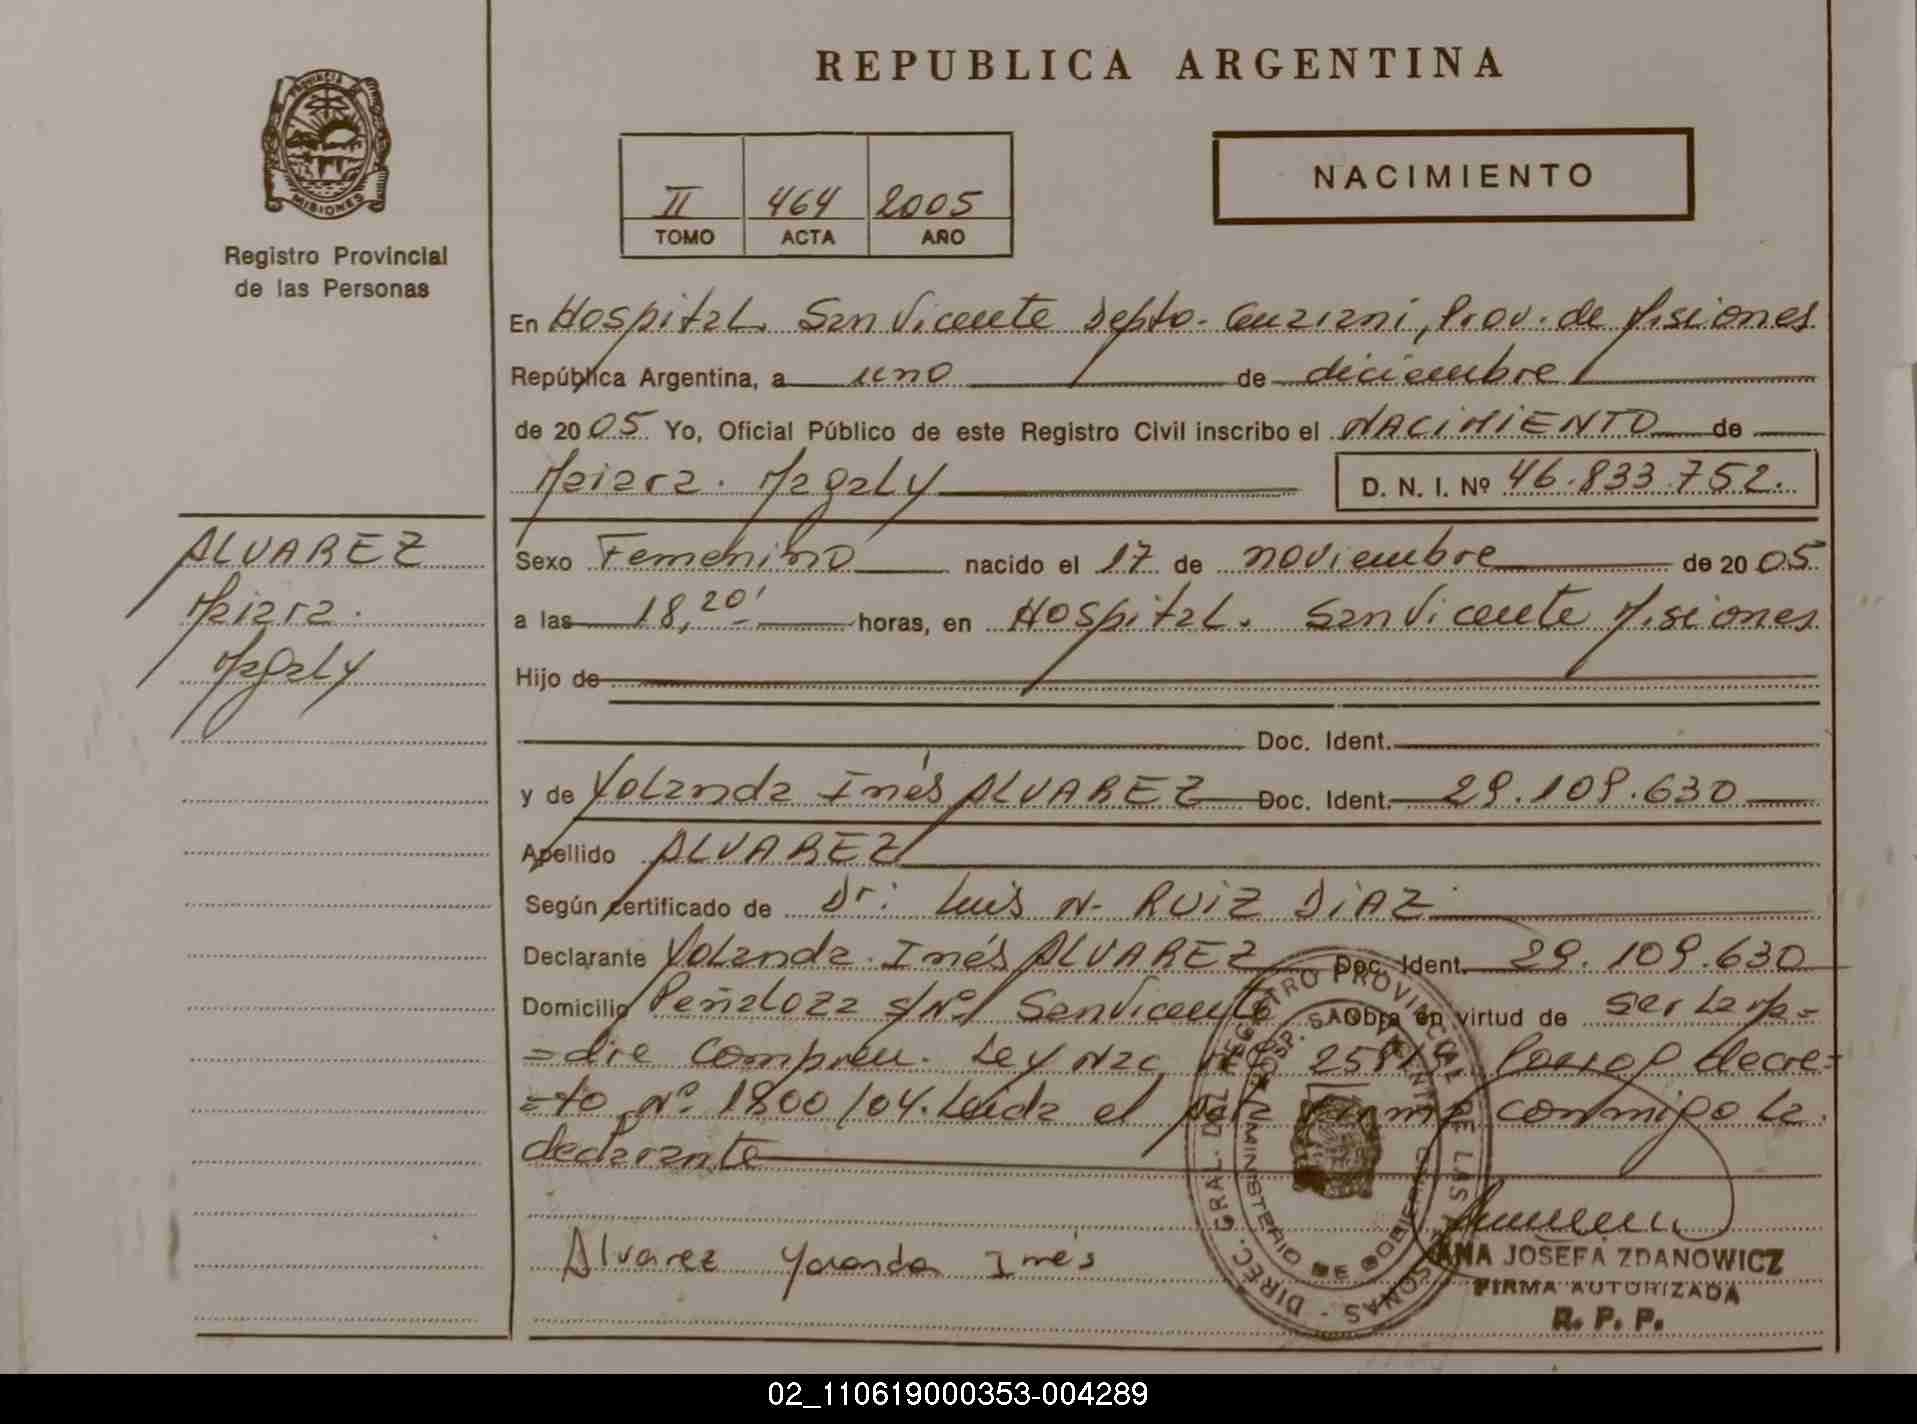 REPUBLICA ARGENTINA
PROVINCIA DE MISIONES
Registro Provincial
de las Personas
II 464 2005
TOMO ACTA AÑO
NACIMIENTO
En Hospital. San Vicente Depto. Guaraní, Prov. de Misiones
República Argentina, a uno de diciembre
de 2005 Yo, Oficial Público de este Registro Civil inscribo el NACIMIENTO de
Maiara. Magaly D. N. I. Nº 46.833.752.
ALVAREZ
Maiara.
Magaly
Sexo Femenino nacido el 17 de noviembre de 2005
a las 18,20' horas, en Hospital. San Vicente Misiones
Hijo de
Doc. Ident.
y de Yolanda Inés ALVAREZ Doc. Ident. 29.109.630
Apellido ALVAREZ
Según certificado de Dr: Luis N. RUIZ DIAZ.
Declarante Yolanda Inés ALVAREZ Doc. Ident. 29.109.630
Domicilio Peñaloza s/Nº San Vicente Obra en virtud de ser la ma=
=dre Compren. Ley Nac Nº decre=
=to Nº 1800/04. Leida el acta firma conmigo la
declarante
DIREC. GRAL. DEL REGISTRO PROVINCIAL DE LAS PERSONAS
HOSP. SAN VICENTE
MINISTERIO DE GOBIERNO
Alvarez Yolanda Inés
ANA JOSEFA ZDANOWICZ
FIRMA AUTORIZADA
R. P. P.
02_110619000353-004289